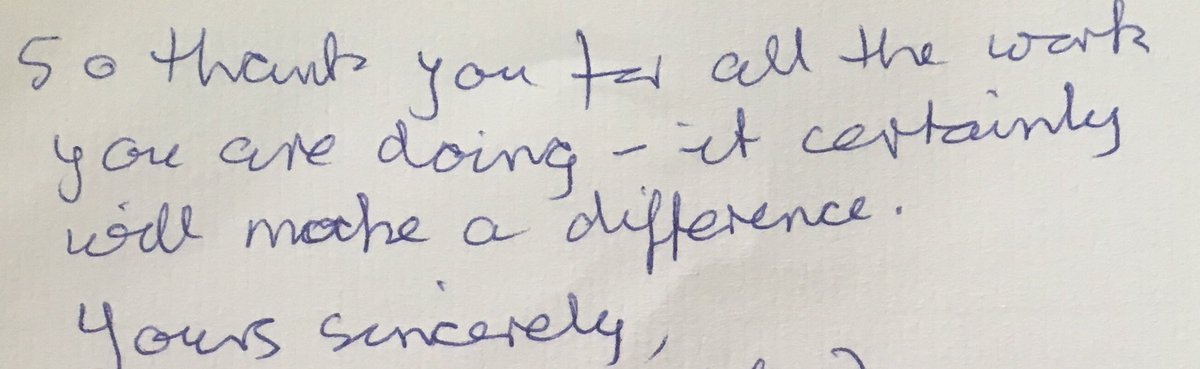 So thank you for all the work
you are doing - it certainly
will make a difference.
Yours sincerely,